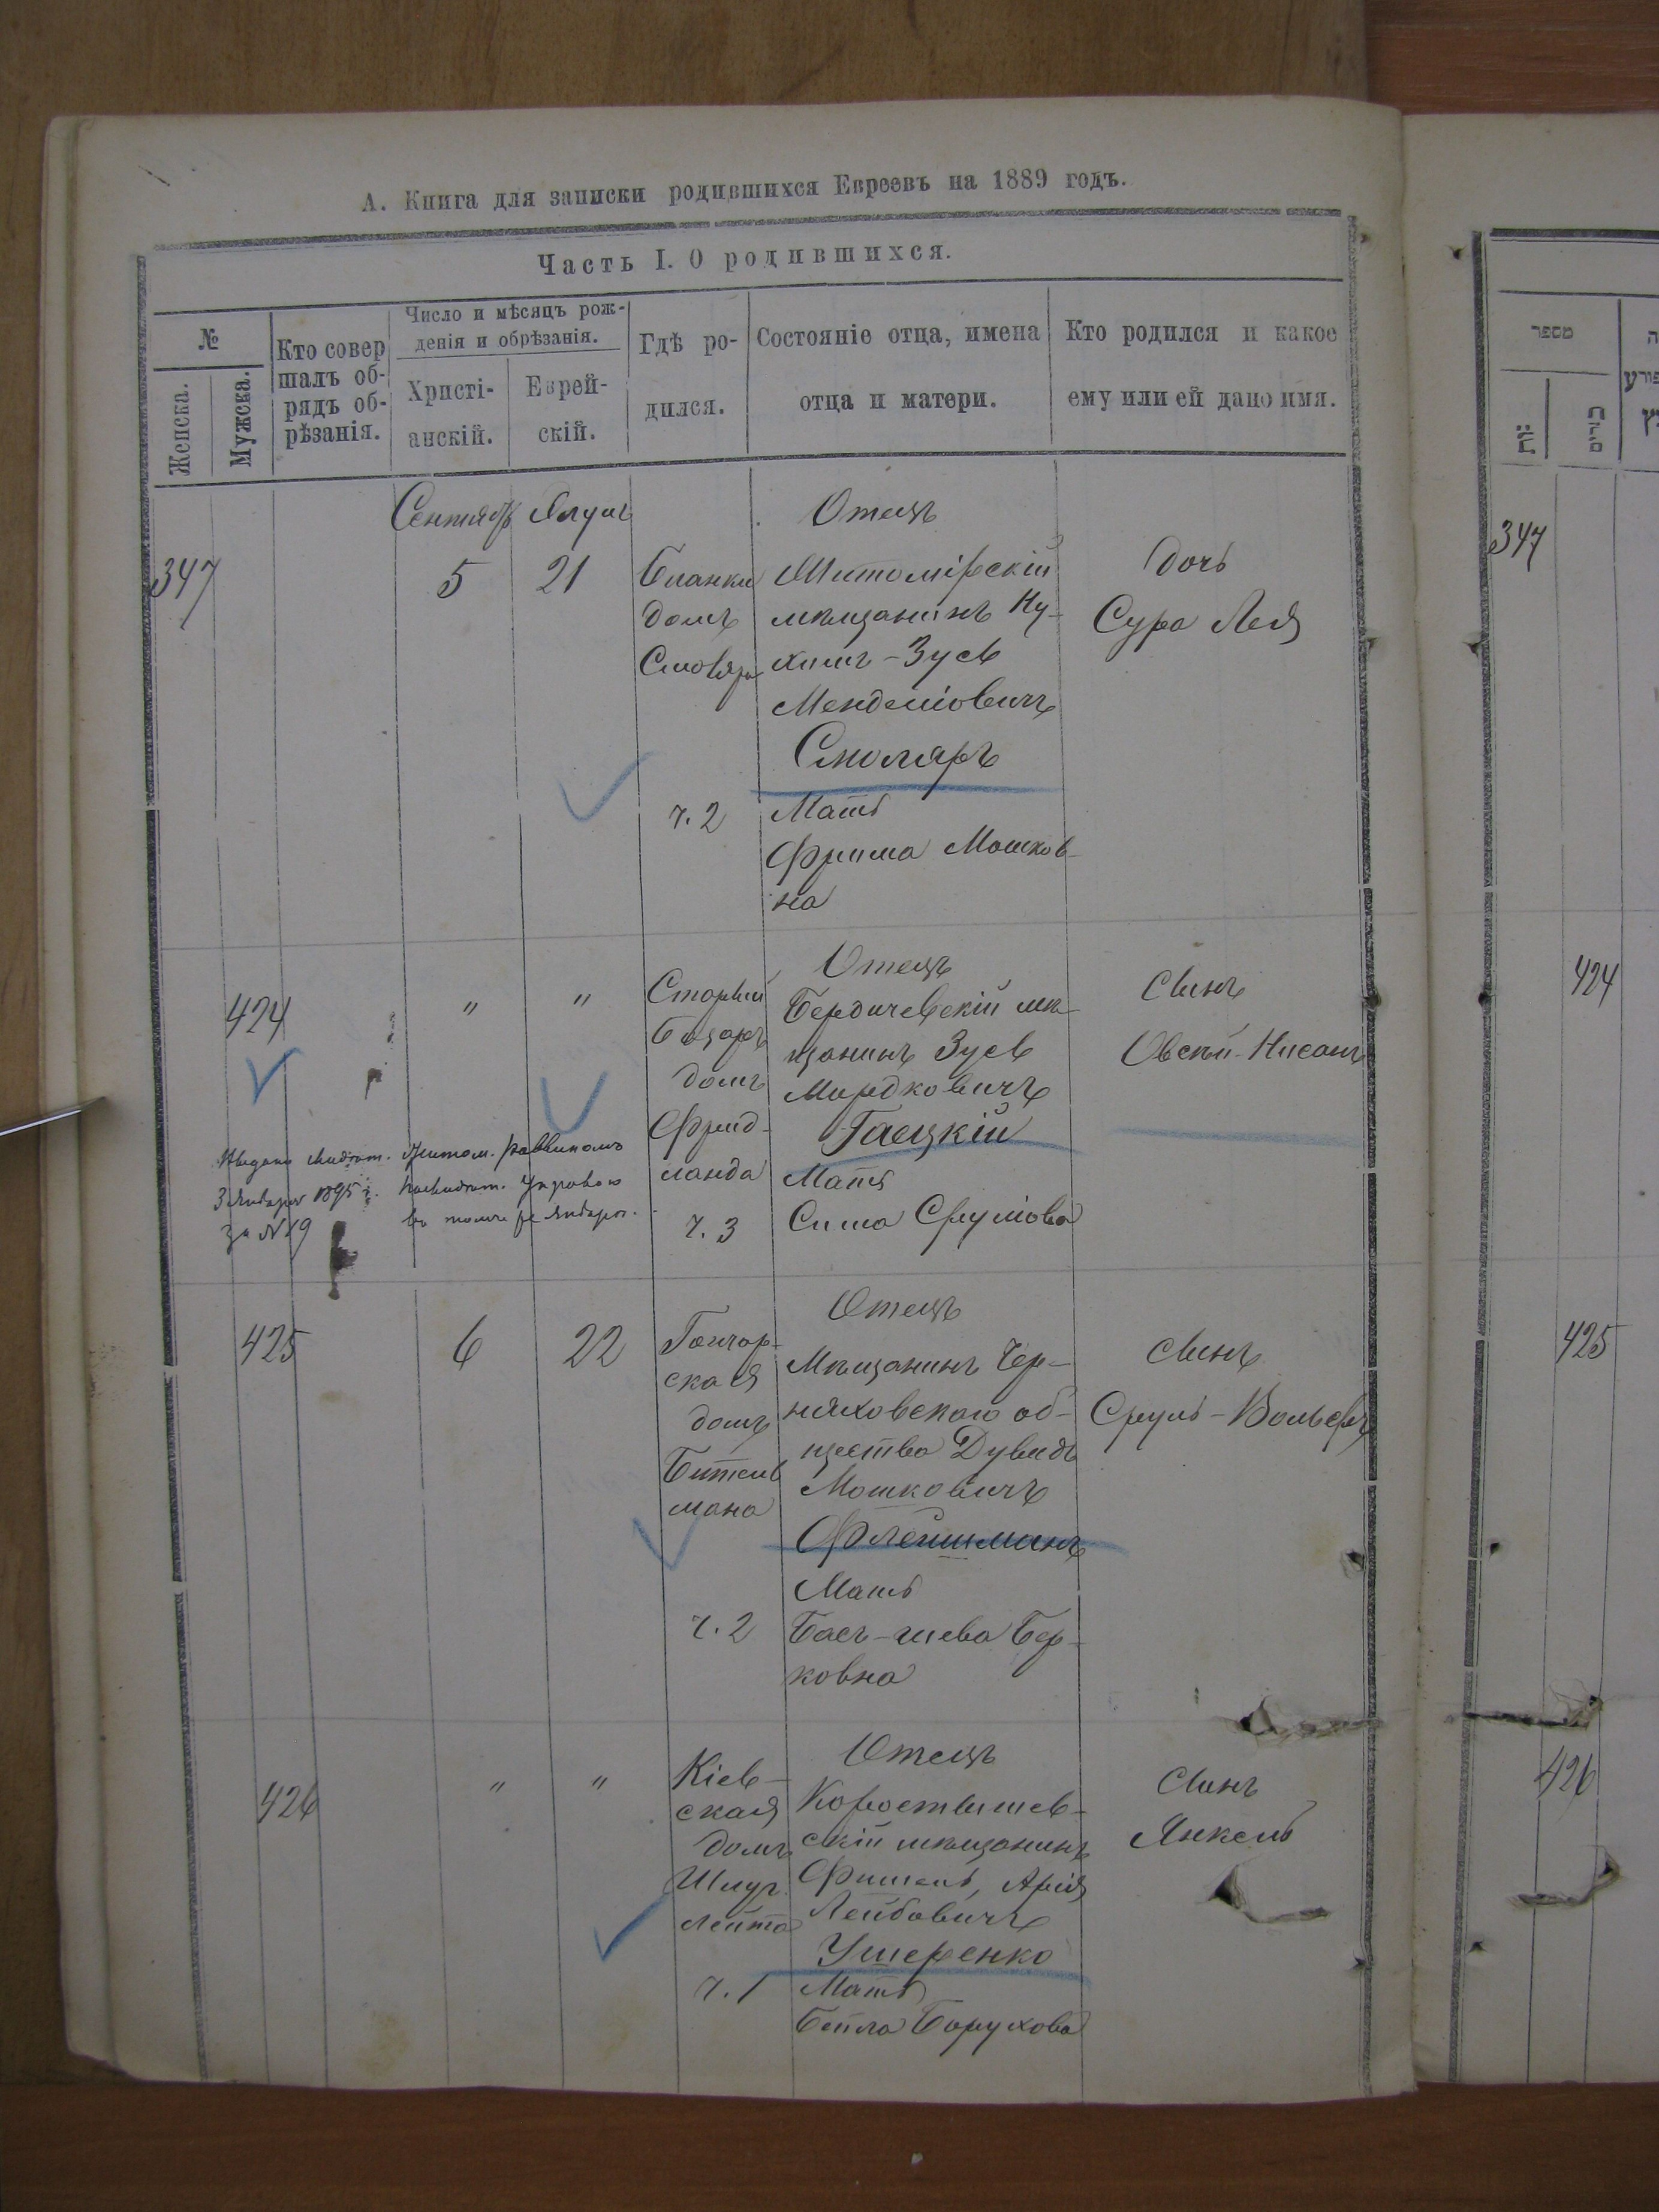 А. Книга для записки родившихся Евреевъ на 1889 годъ.
Часть I. О родившихся.
№
Женска.
Мужска.
Кто совер
шалъ об-
рядъ об-
рѣзанія.
Число и мѣсяцъ рож-
денія и обрѣзанія.
Христі-
анскій.
Еврей-
скій.
Гдѣ ро-
дился.
Состояніе отца, имена
отца и матери.
Кто родился и какое
ему или ей дано имя.
347
Сентябр
5
Элулъ
21
домъ
ч. 2
Отецъ
Житомірскій
мѣщанинъ Ну-
химъ-Зусь
Менделіовичъ
Столяръ
Мать
Фрима Мошков-
на
Дочь
Сура Лея
424
"
"
Старый
Базаръ
домъ
Фрид-
ланда
ч. 3
Отецъ
Бердичевскій мѣ-
щанинъ Зусь
Мордковичъ
Гаецкій
Мать
Сима Срулiова
Сынъ
Овсѣй-Нисонъ
Выдано свидѣт. Житом. раввиномъ
3 Января 1895 г.
за №19
425
6
22
Гончар-
ская
домъ
Бительь
мана
ч. 2
Отецъ
Мѣщанинъ Чер-
няховскаго об-
щества Дувидъ
Мошковичъ
Флейшманъ
Мать
Бась-шева Бер-
ковна
Сынъ
Сруль-Вольфъ
426
"
"
Кіев-
ская
домъ
ч. 1
Отецъ
Коростышев-
скій мѣщанинъ
Фишель, Арія
Лейбовичъ
Ушеренко
Мать
Бейла Борухова
Сынъ
Янкель
מספר
347
424
425
426